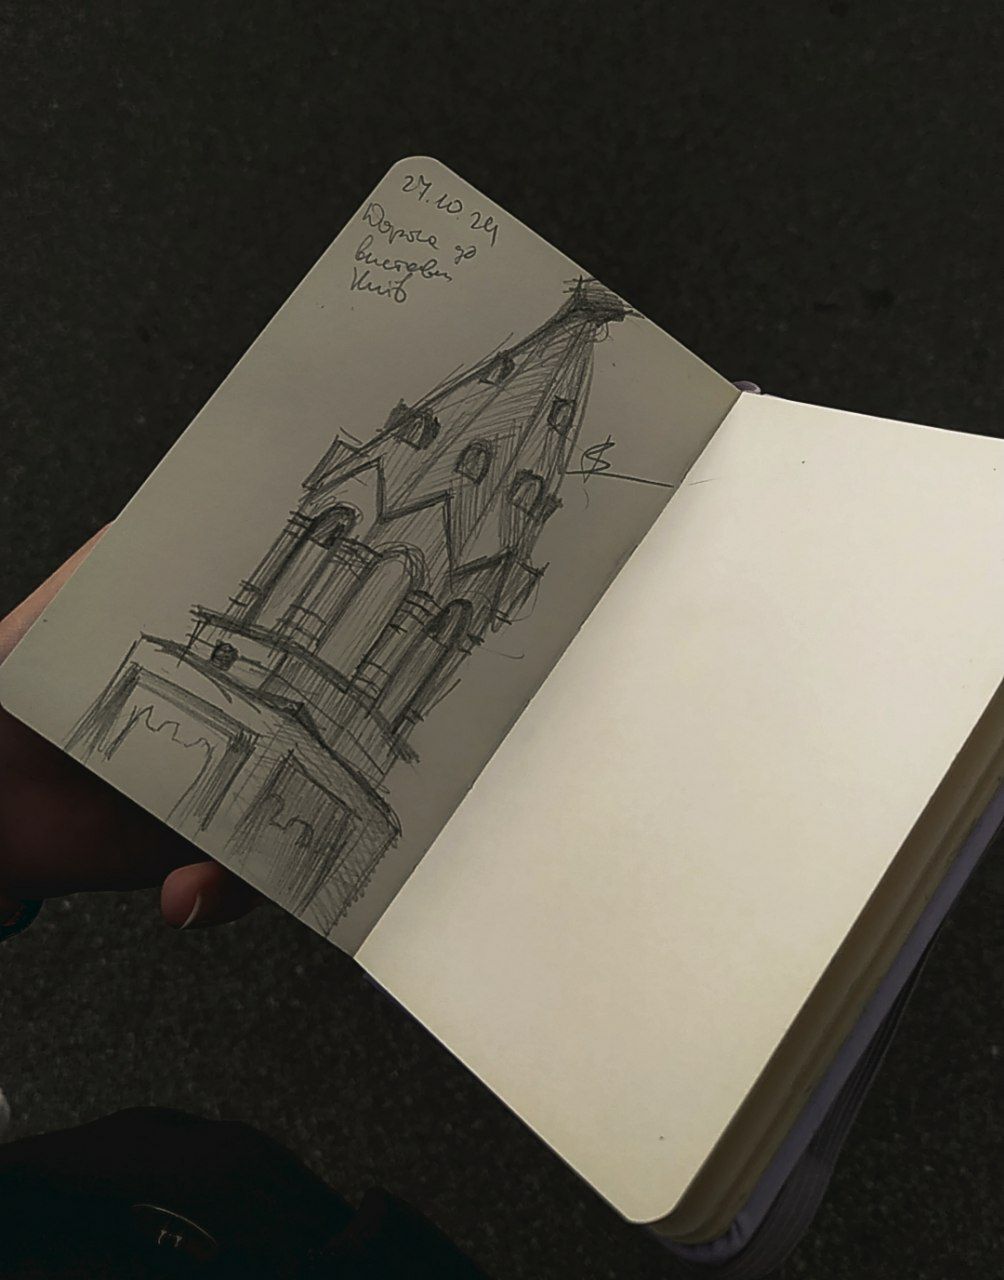 27.10.24
Дорога до
виставки
Київ